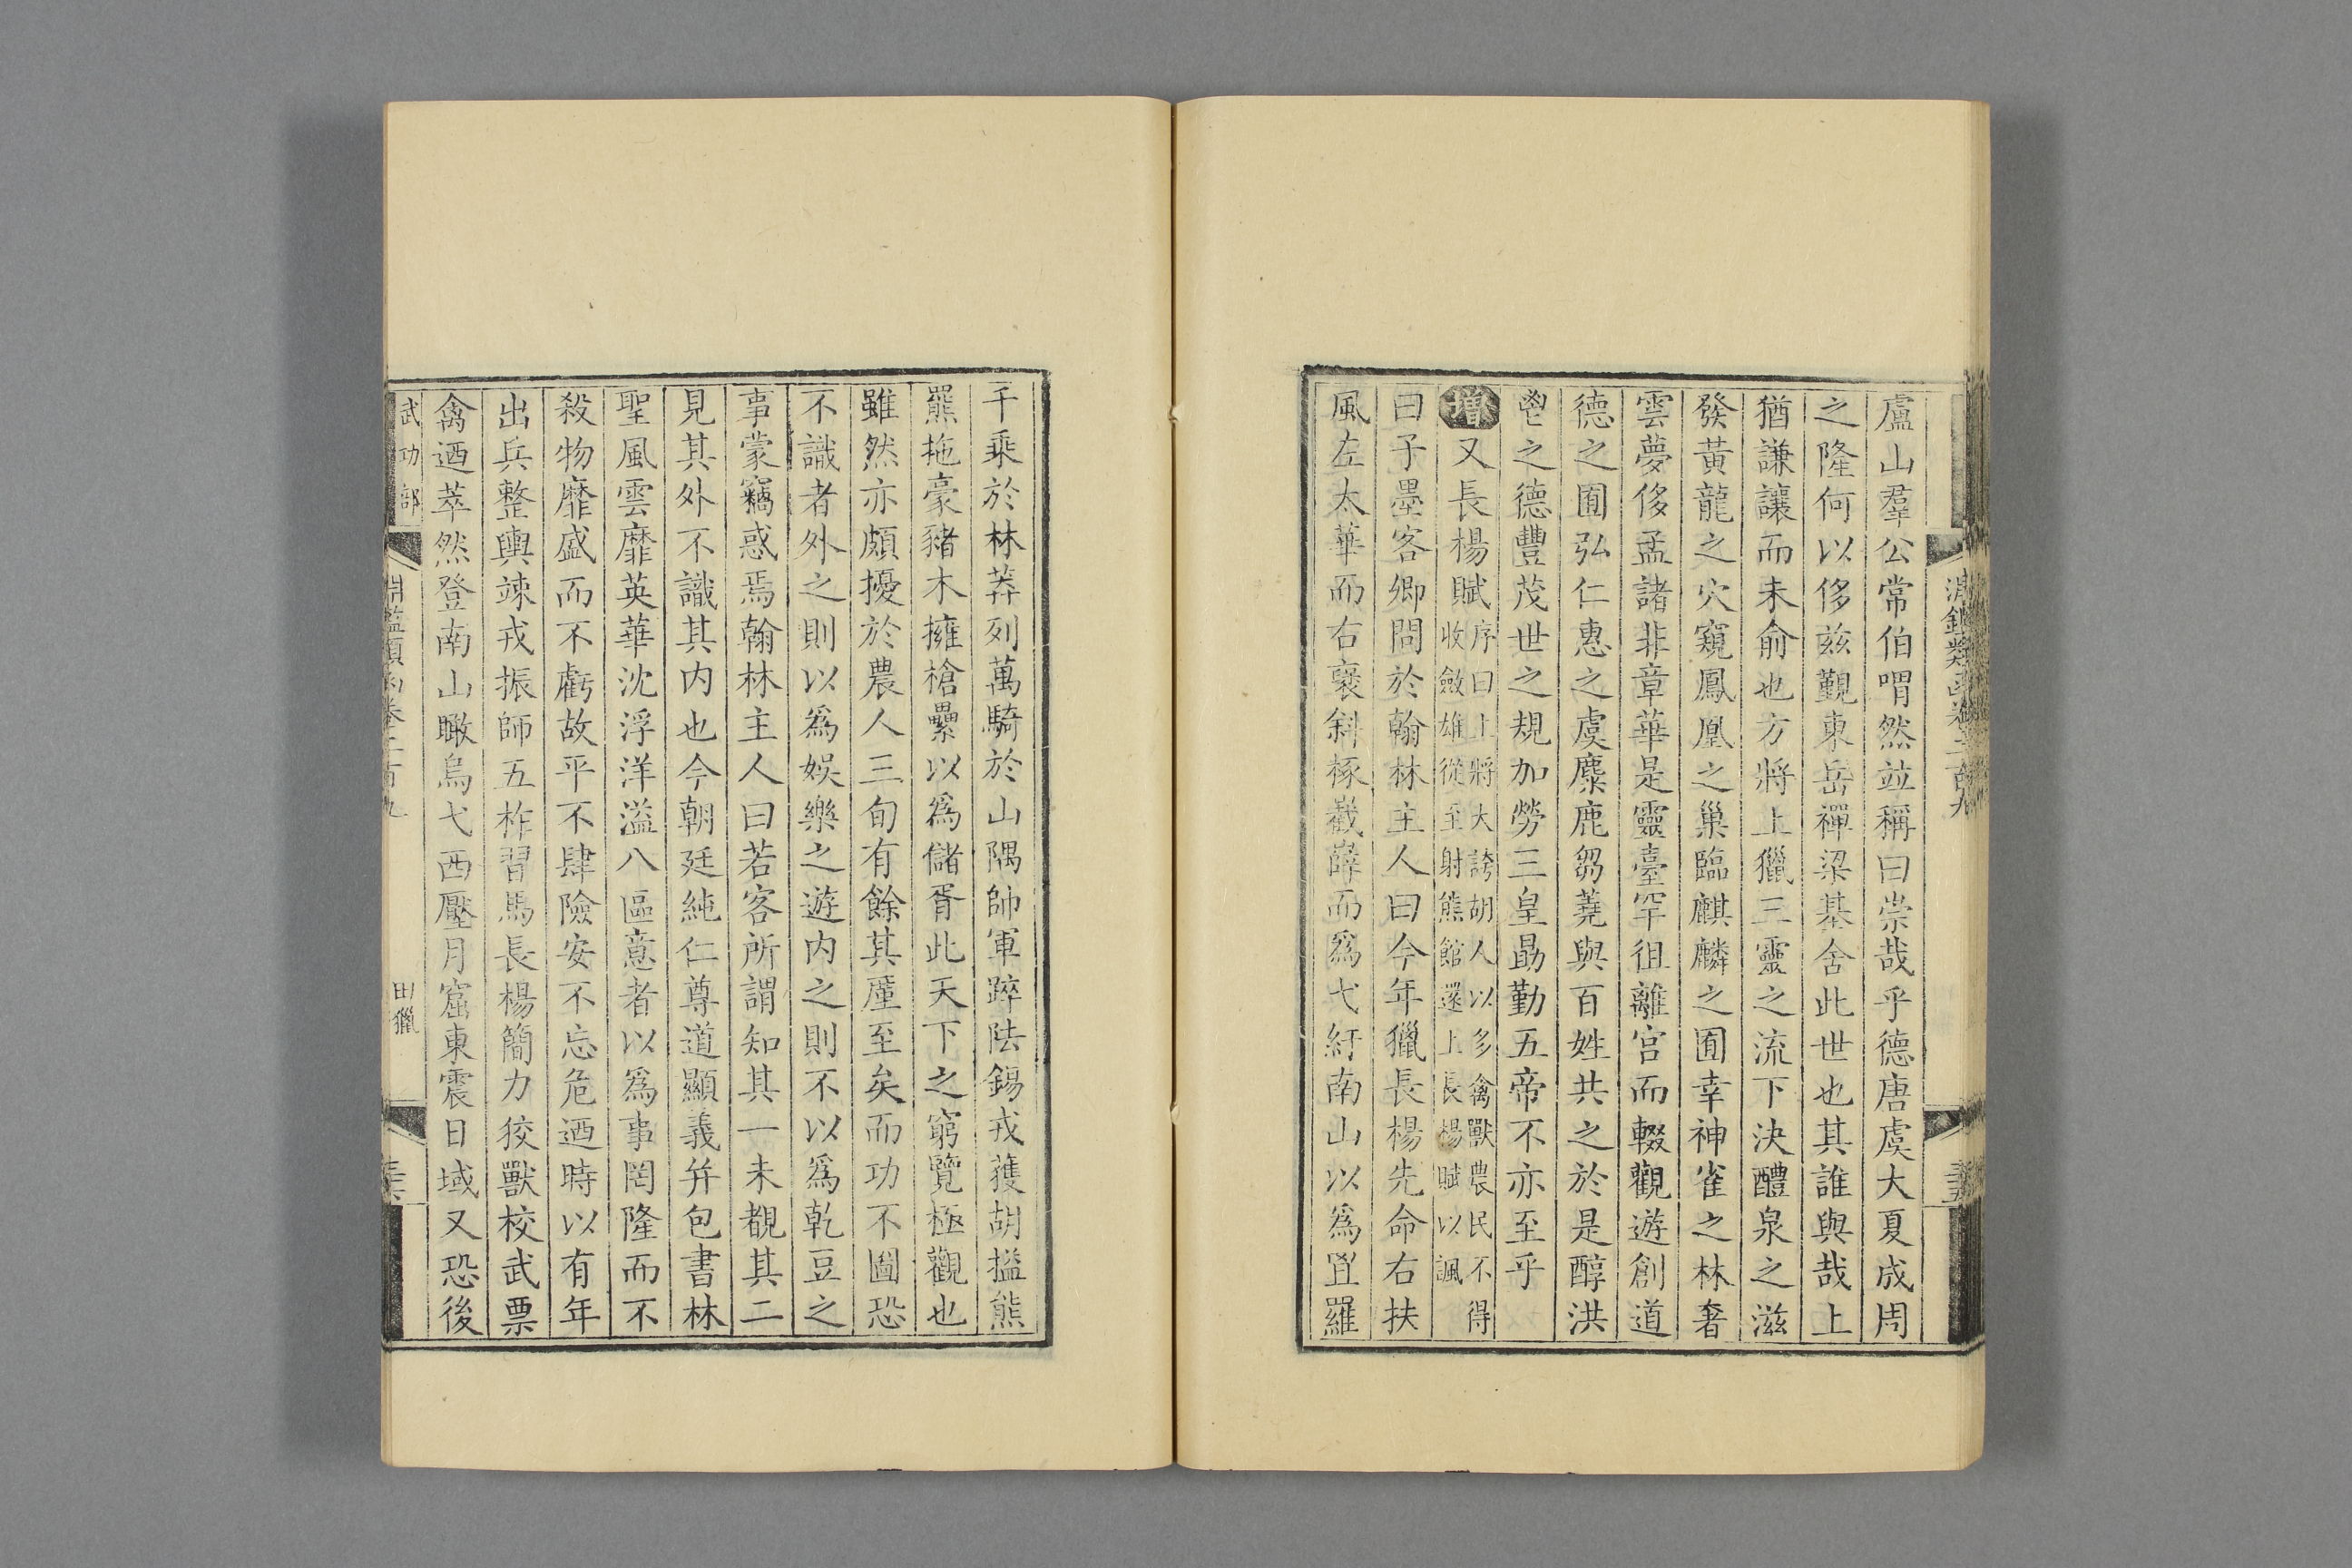 盧山羣公常伯喟然竝稱曰崇哉乎德唐虞大夏成周
之隆何以侈玆覲東岳禪梁基舍此世也其誰與哉上
猶謙讓而未俞也方將上獵三靈之流下決醴泉之滋
發黃龍之穴窺鳳凰之巢臨麒麟之囿幸神雀之林奢
雲夢侈孟諸非章華是靈臺罕徂離宮而輟觀遊創道
德之囿弘仁惠之虞麋鹿芻蕘與百姓共之於是醇洪
鬯之德豐茂世之規加勞三皇勗勤五帝不亦至乎
增又長楊賦序曰上將大誇胡人以多禽獸農民不得
收斂雄從至射熊館還上長楊賦以諷
曰子墨客卿問於翰林主人曰今年獵長楊先命右扶
風左太華而右褒斜椓嶻嶭而爲弋紆南山以爲罝羅
千乘於林莽列萬騎於山隅帥軍踤阹錫戎獲胡搤熊
羆拖豪豬木擁槍纍以爲儲胥此天下之窮覽極觀也
雖然亦頗擾於農人三旬有餘其廑至矣而功不圖恐
不識者外之則以爲娛樂之遊内之則不以爲乾豆之
事蒙竊惑焉翰林主人曰若客所謂知其一未覩其二
見其外不識其内也今朝廷純仁尊道顯義幷包書林
聖風雲靡英華沈浮洋溢八區意者以爲事罔隆而不
殺物靡盛而不虧故平不肆險安不忘危迺時以有年
出兵整輿竦戎振師五柞習馬長楊簡力狡獸校武票
禽迺萃然登南山瞰烏弋西壓月窟東震日域又恐後
武功部
田獵